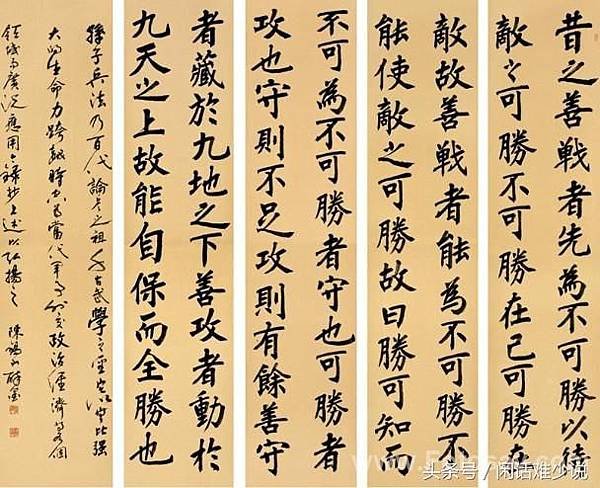 昔之善戰者先為不可勝以待
敵之可勝不可勝在己可勝在
敵故善戰者能為不可勝不
能使敵之可勝故曰勝可知而
不可為不可勝者守也可勝者
攻也守則不足攻則有餘善守
者藏於九地之下善攻者動於
九天之上故能自保而全勝也
孫子兵法乃百代論兵之祖千古武學之聖典以它比強
大的生命力跨越時空為當代軍事外交政治經濟等各個
領域所廣泛應用今錄抄上述以弘揚之 陳錫山
头条号/闲话难少说